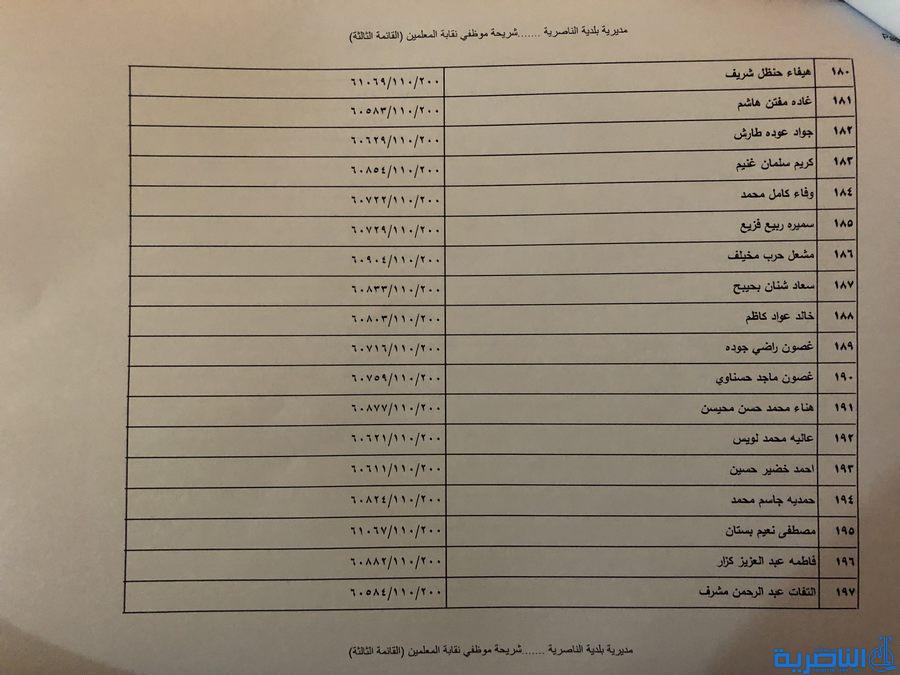 مديرية بلدية الناصرية .......شريحة موظفي نقابة المعلمين (القائمة الثالثة)
١٨٠ هيفاء حنظل شريف ٦١٠٦٩/١١٠/٢٠٠
١٨١ غاده مفتن هاشم ٦٠٥٨٣/١١٠/٢٠٠
١٨٢ جواد عوده طارش ٦٠٦٢٩/١١٠/٢٠٠
١٨٣ كريم سلمان غنيم ٦٠٨٥٤/١١٠/٢٠٠
١٨٤ وفاء كامل محمد ٦٠٧٢٢/١١٠/٢٠٠
١٨٥ سميره ربيع فزيع ٦٠٧٢٩/١١٠/٢٠٠
١٨٦ مشعل حرب مخيلف ٦٠٩٠٤/١١٠/٢٠٠
١٨٧ سعاد شنان بحيبح ٦٠٨٣٣/١١٠/٢٠٠
١٨٨ خالد عواد كاظم ٦٠٨٠٣/١١٠/٢٠٠
١٨٩ غصون راضي جوده ٦٠٧١٦/١١٠/٢٠٠
١٩٠ غصون ماجد حسناوي ٦٠٧٥٩/١١٠/٢٠٠
١٩١ هناء محمد حسن محيسن ٦٠٨٧٧/١١٠/٢٠٠
١٩٢ عاليه محمد لويس ٦٠٦٢١/١١٠/٢٠٠
١٩٣ احمد خضير حسين ٦٠٦١١/١١٠/٢٠٠
١٩٤ حمديه جاسم محمد ٦٠٨٢٤/١١٠/٢٠٠
١٩٥ مصطفى نعيم بستان ٦١٠٦٧/١١٠/٢٠٠
١٩٦ فاطمه عبد العزيز كزار ٦٠٨٨٢/١١٠/٢٠٠
١٩٧ التفات عبد الرحمن مشرف ٦٠٥٨٤/١١٠/٢٠٠
مديرية بلدية الناصرية .......شريحة موظفي نقابة المعلمين (القائمة الثالثة)
الناصرية